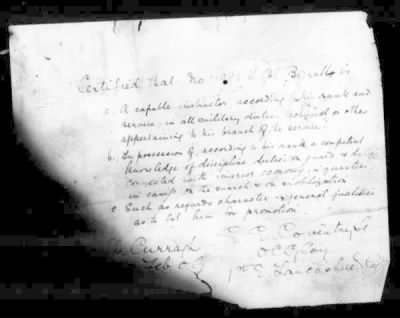 Certified that No L/Cpl is
a. A capable instructor according to his rank and
service, in all military duties, technical or other
appertaining to his branch of the service.
b. In possession of, according to his rank a competent
knowledge of discipline duties on guard &
connected with interior economy in quarters
in camp, on the march & on mobilization
c. Such as regards character & general qualities
as to fit him for promotion.
Curragh
Feb
O C G Coy
Lancashire